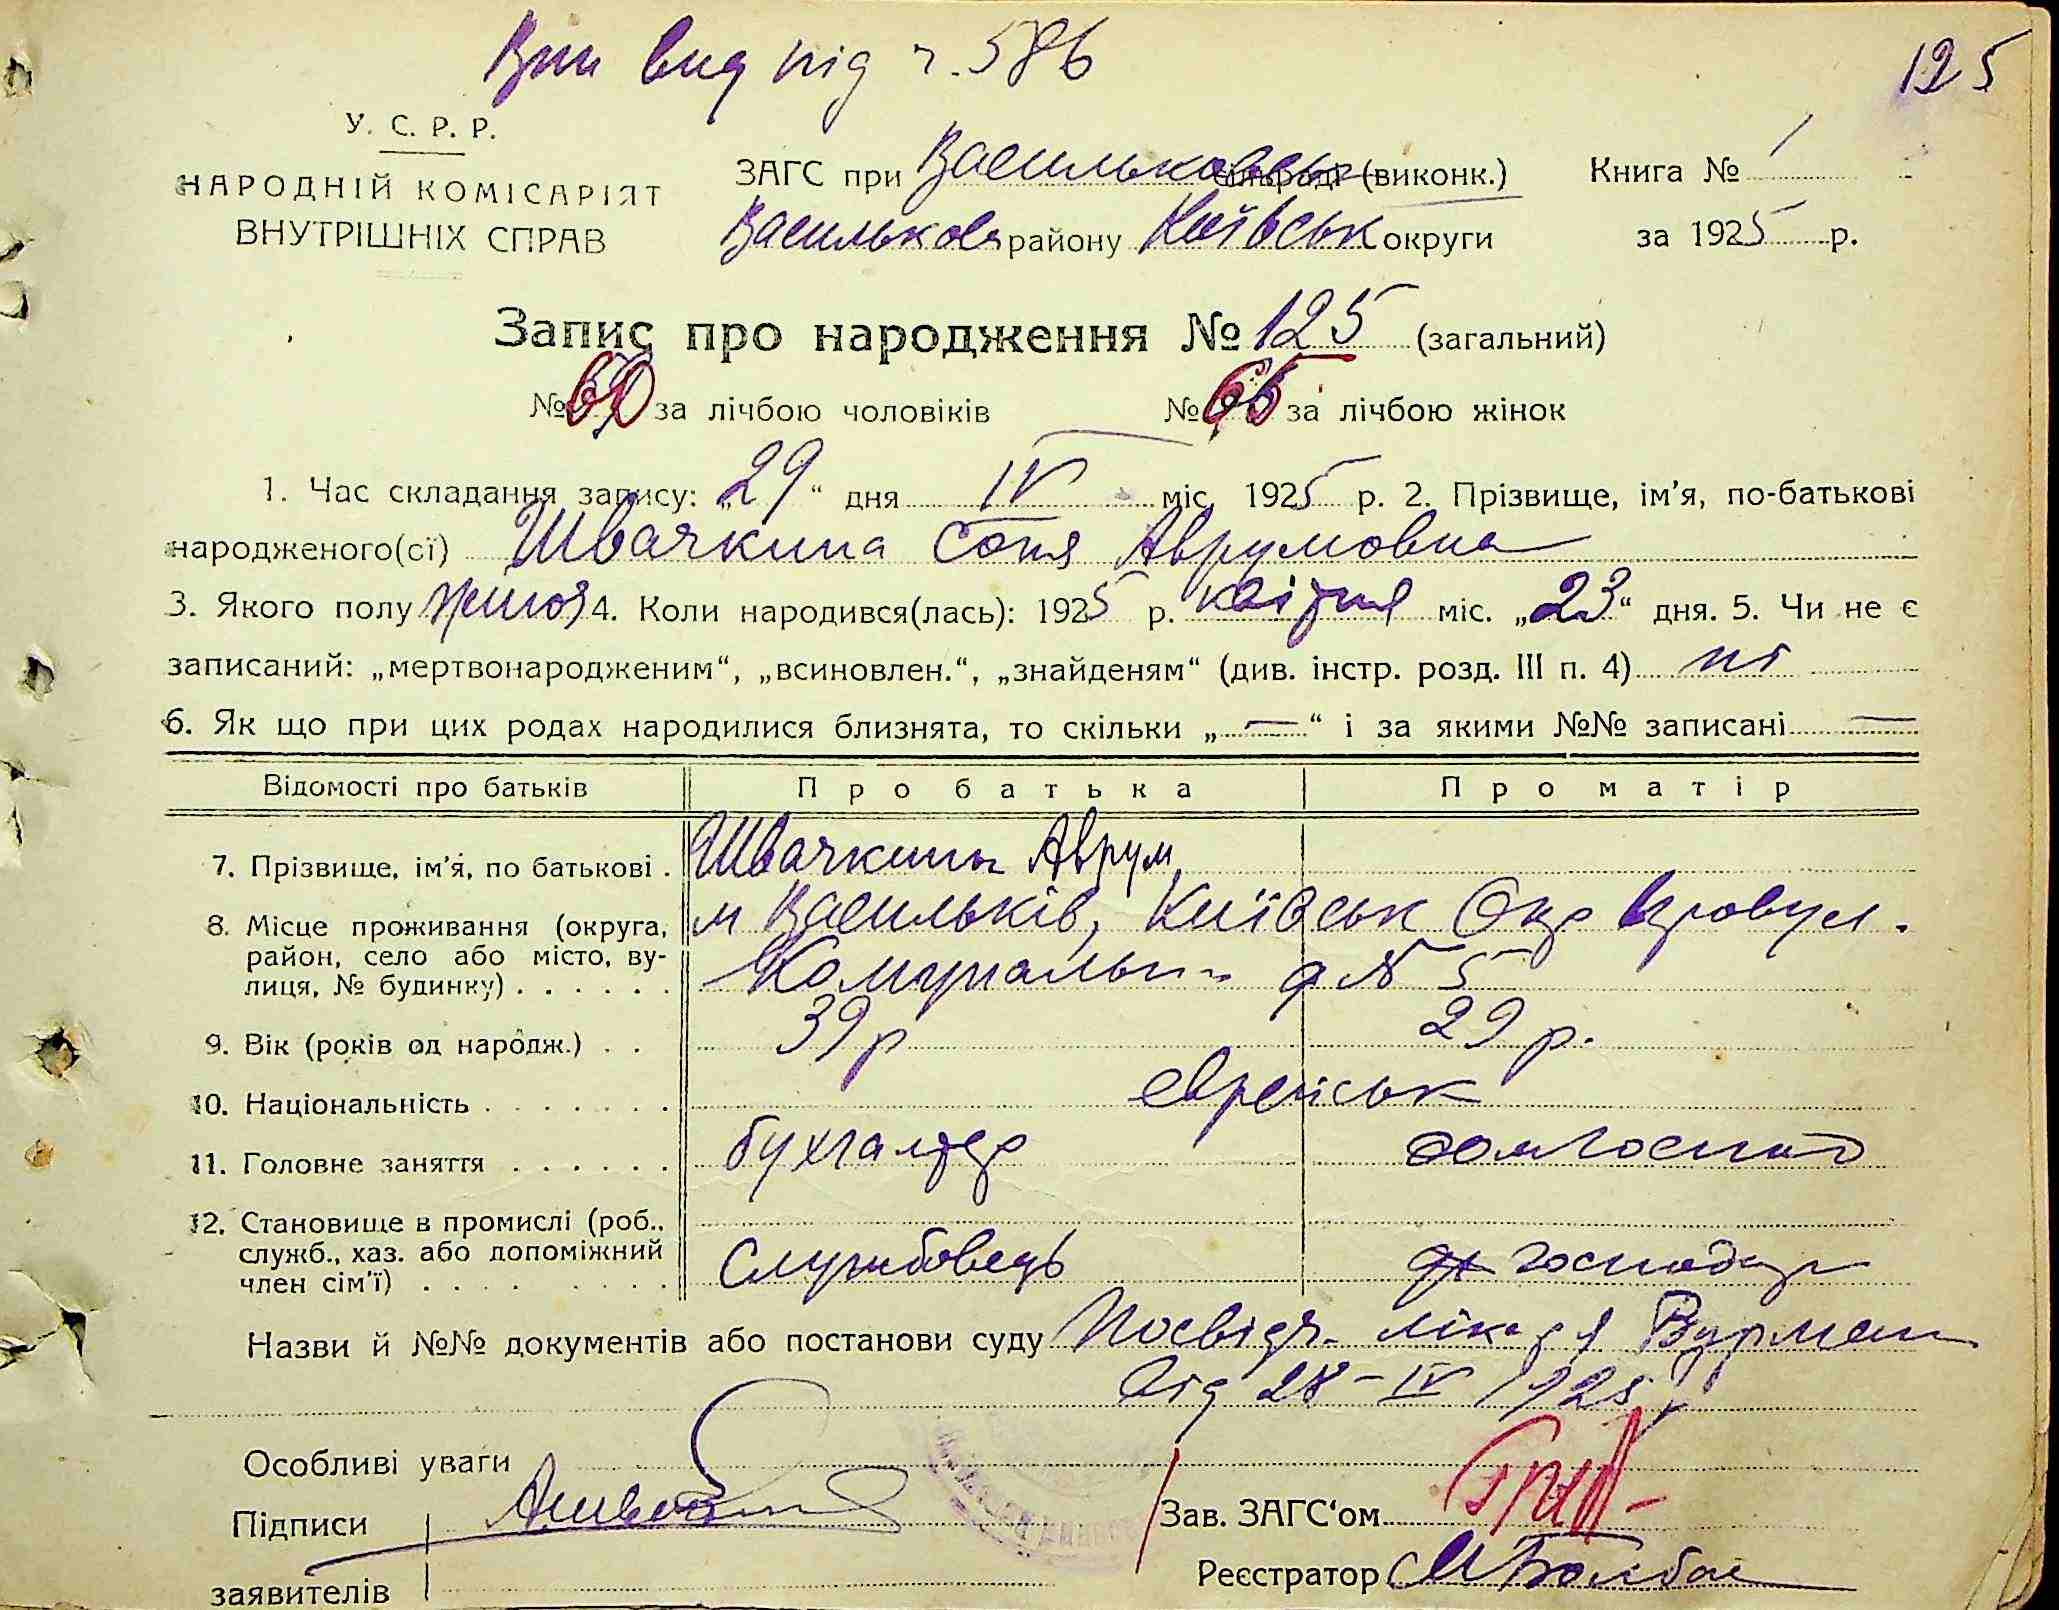 Вип вид під ч. 586
125
У. С. Р. Р.
НАРОДНІЙ КОМІСАРІЯТ
ВНУТРІШНІХ СПРАВ
ЗАГС при Васильковськ (виконк.)
Васильков району Київськ округи
Книга № 1
за 1925 р.
Запис про народження № 125 (загальний)
№ 60 за лічбою чоловіків № 65 за лічбою жінок
1. Час складання запису: „29“ дня IV міс. 1925 р. 2. Прізвище, ім'я, по-батькові
народженого(сї) Швачкина Соня Аврумовна
3. Якого полу жіноч 4. Коли народився(лась): 1925 р. квітня міс. „23“ дня. 5. Чи не є
записаний: „мертвонародженим“, „всиновлен.“, „знайденям“ (див. інстр. розд. III п. 4) ні
6. Як що при цих родах народилися близнята, то скільки „—“ і за якими №№ записані —
Відомості про батьків Про батька Про матір
7. Прізвище, ім'я, по батькові . Швачкины Аврум
8. Місце проживання (округа, м Васильків, Київськ Окр
район, село або місто, ву- Комунальн д № 5
лиця, № будинку) . . . . . .
9. Вік (років од народж.) . . 39 р 29 р.
10. Національність . . . . . . . еврейськ
11. Головне заняття . . . . . . бухгалтер домгоспод
12. Становище в промислі (роб.,
служб., хаз. або допоміжний Службовець господар
член сім'ї) . . . . . . .
Назви й №№ документів або постанови суду Посвідч. лікаря Вурман
Від 28-IV 1925 р
Особливі уваги
Підписи
заявителів
Зав. ЗАГС‘ом
Реєстратор